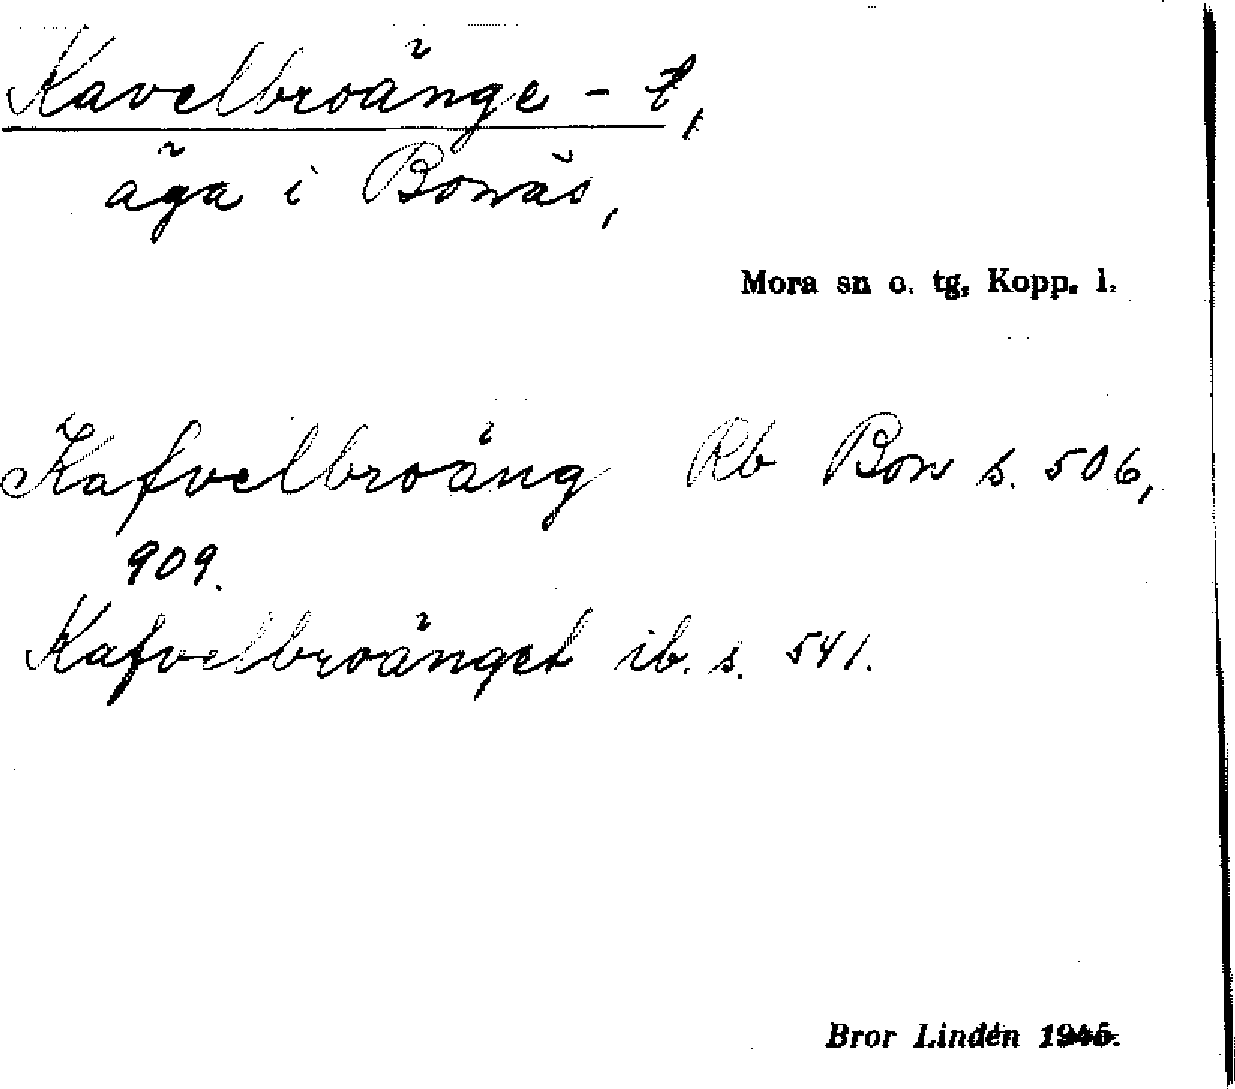 Kavelbroänge - t,
äga i Bonäs,
Mora sn o. tg, Kopp. l.
Kafvelbroäng Rb Bon s. 506,
909.
Kafvelbroänget ib. s. 541.
Bror Lindén 1945.